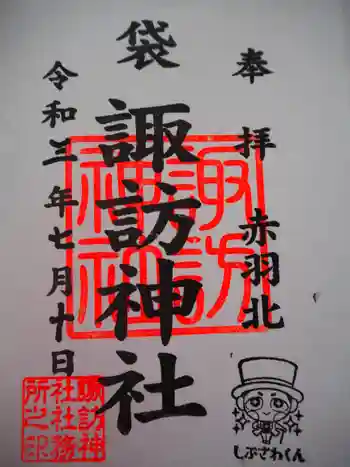 奉拝 赤羽北
袋
諏訪神社
令和三年七月十日
諏訪神社
諏訪神社社務所之印
しぶさわくん